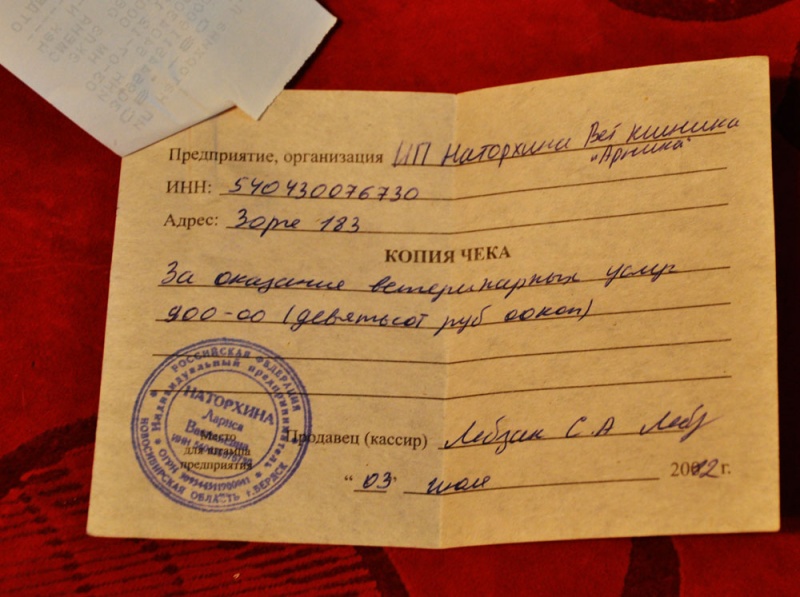 Предприятие, организация ИП Наторхина Вет клиника
"Арника"
ИНН: 540430076730
Адрес: Зорге 183
КОПИЯ ЧЕКА
За оказание ветеринарных услуг
900-00 (девятьсот руб 00коп)
РОССИЙСКАЯ ФЕДЕРАЦИЯ
Индивидуальный предприниматель
НАТОРХИНА
Лариса
ИНН
Место
для штампа
предприятия
ОГРН
НОВОСИБИРСКАЯ ОБЛАСТЬ г. БЕРДСК
Продавец (кассир) Лебзак С.А Лебз
"03" июля 2012 г.